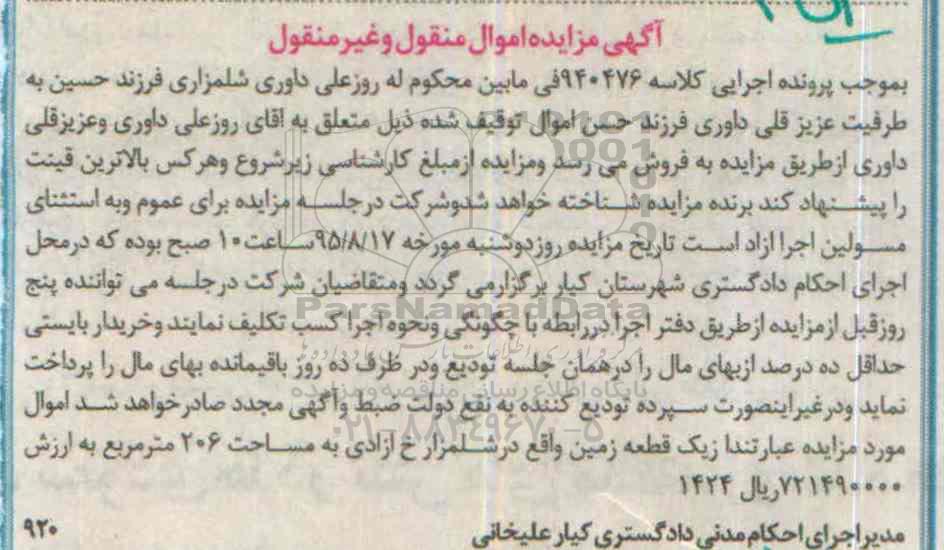 آگهی مزایده اموال منقول و غیر منقول
بموجب پرونده اجرایی کلاسه ۹۴۰۴۷۶فی مابین محکوم له روزعلی داوری شلمزاری فرزند حسین به
طرفیت عزیز قلی داوری فرزند حسن اموال توقیف شده ذیل متعلق به اقای روزعلی داوری وعزیزقلی
داوری ازطریق مزایده به فروش می رسد ومزایده ازمبلغ کارشناسی زیرشروع وهرکس بالاترین قینت
را پیشنهاد کند برنده مزایده شناخته خواهد شدوشرکت درجلسه مزایده برای عموم وبه استثنای
مسولین اجرا ازاد است تاریخ مزایده روزدوشنبه مورخه ۹۵/۸/۱۷ساعت۱۰ صبح بوده که درمحل
اجرای احکام دادگستری شهرستان کیار برگزارمی گردد ومتقاضیان شرکت درجلسه می تواننده پنج
روزقبل ازمزایده ازطریق دفتر اجرا دررابطه با چگونگی ونحوه اجرا کسب تکلیف نمایند وخریدار بایستی
حداقل ده درصد ازبهای مال را درهمان جلسه تودیع ودر ظرف ده روز باقیمانده بهای مال را پرداخت
نماید ودرغیراینصورت سپرده تودیع کننده به نفع دولت ضبط واگهی مجدد صادرخواهد شد اموال
مورد مزایده عبارتندا زیک قطعه زمین واقع درشلمزار خ ازادی به مساحت ۲۰۶ مترمربع به ارزش
۷۲۱۴۹۰۰۰۰ریال ۱۴۲۴
مدیراجرای احکام مدنی دادگستری کیار علیخانی
۹۲۰
ParsNamadData
پایگاه اطلاع رسانی مناقصه و مزایده
۰۲۱-۸۸۳۴۹۶۷۰-۵